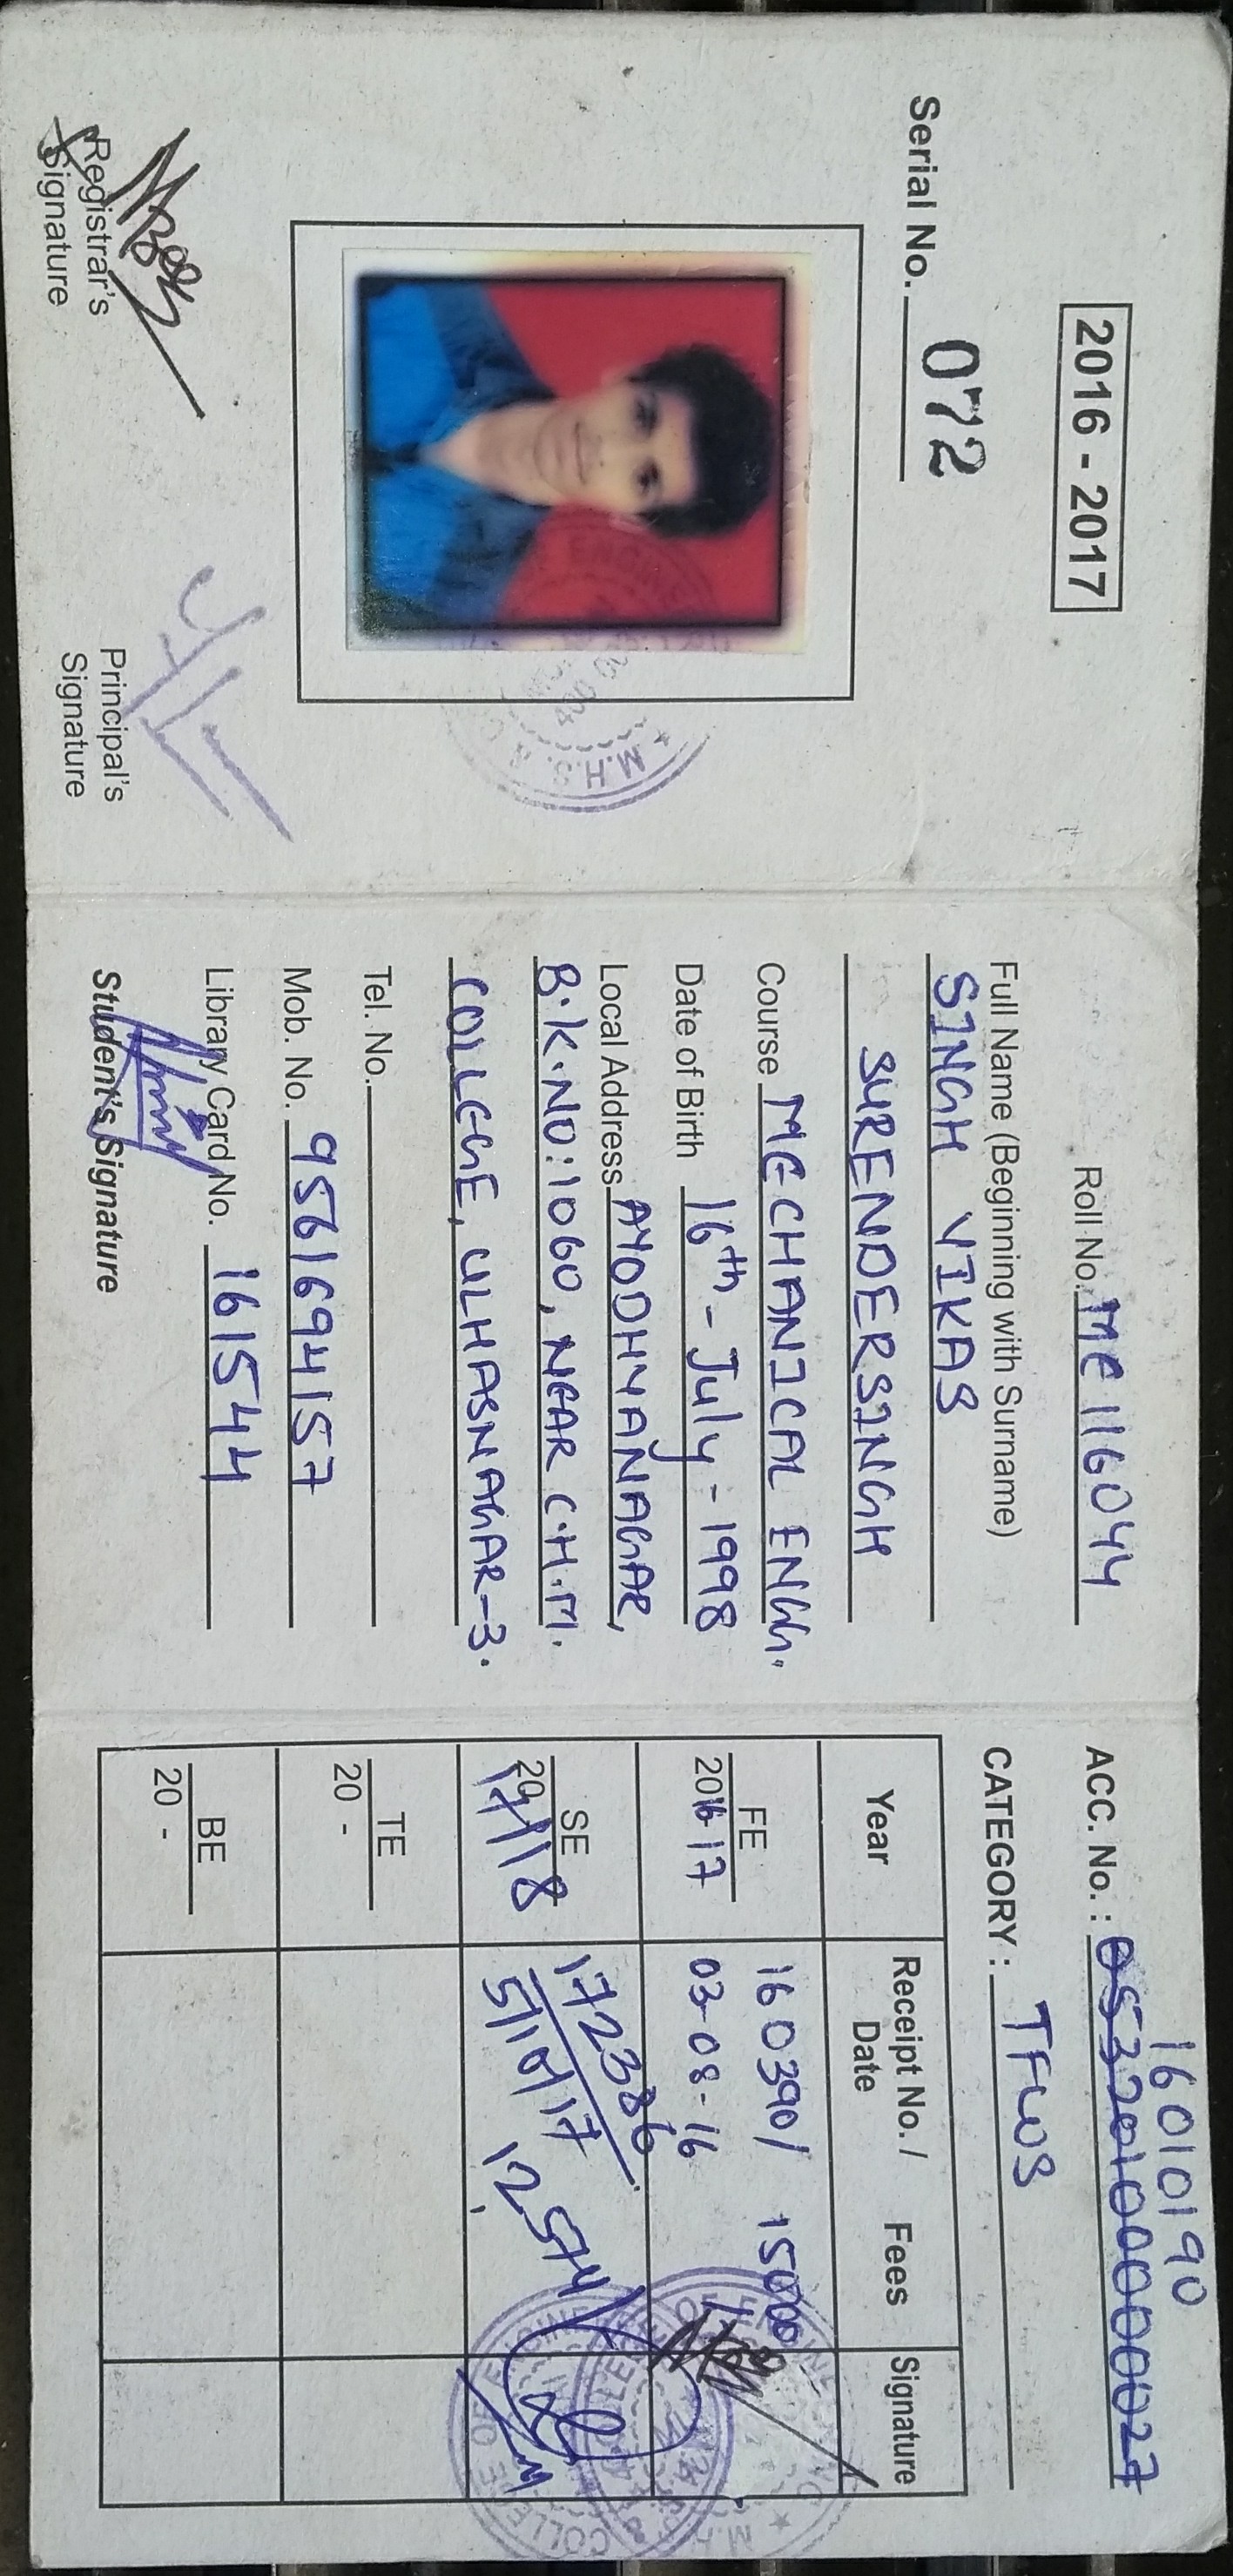 2016 - 2017
Serial No. 072
★ M.H.S.
Registrar's
Signature
Principal's
Signature
Roll No. ME 116044
Full Name (Beginning with Surname)
SINGH VIKAS
SURENDERSINGH
Course MECHANICAL ENGG.
Date of Birth 16th - July - 1998
Local Address AYODHYANAGAR,
B.K.NO:1060, NEAR C.H.M.
COLLEGE, ULHASNAGAR-3.
Tel. No.
Mob. No. 9561694157
Library Card No. 161544
Student's Signature
16010190
ACC. No. : 05320100000027
CATEGORY : TFWS
Year Receipt No. / Date Fees Signature
FE 2016-17 160390/ 15000
03-08-16
SE 2017/18 172386
12,574
TE
20 -
BE
20 -